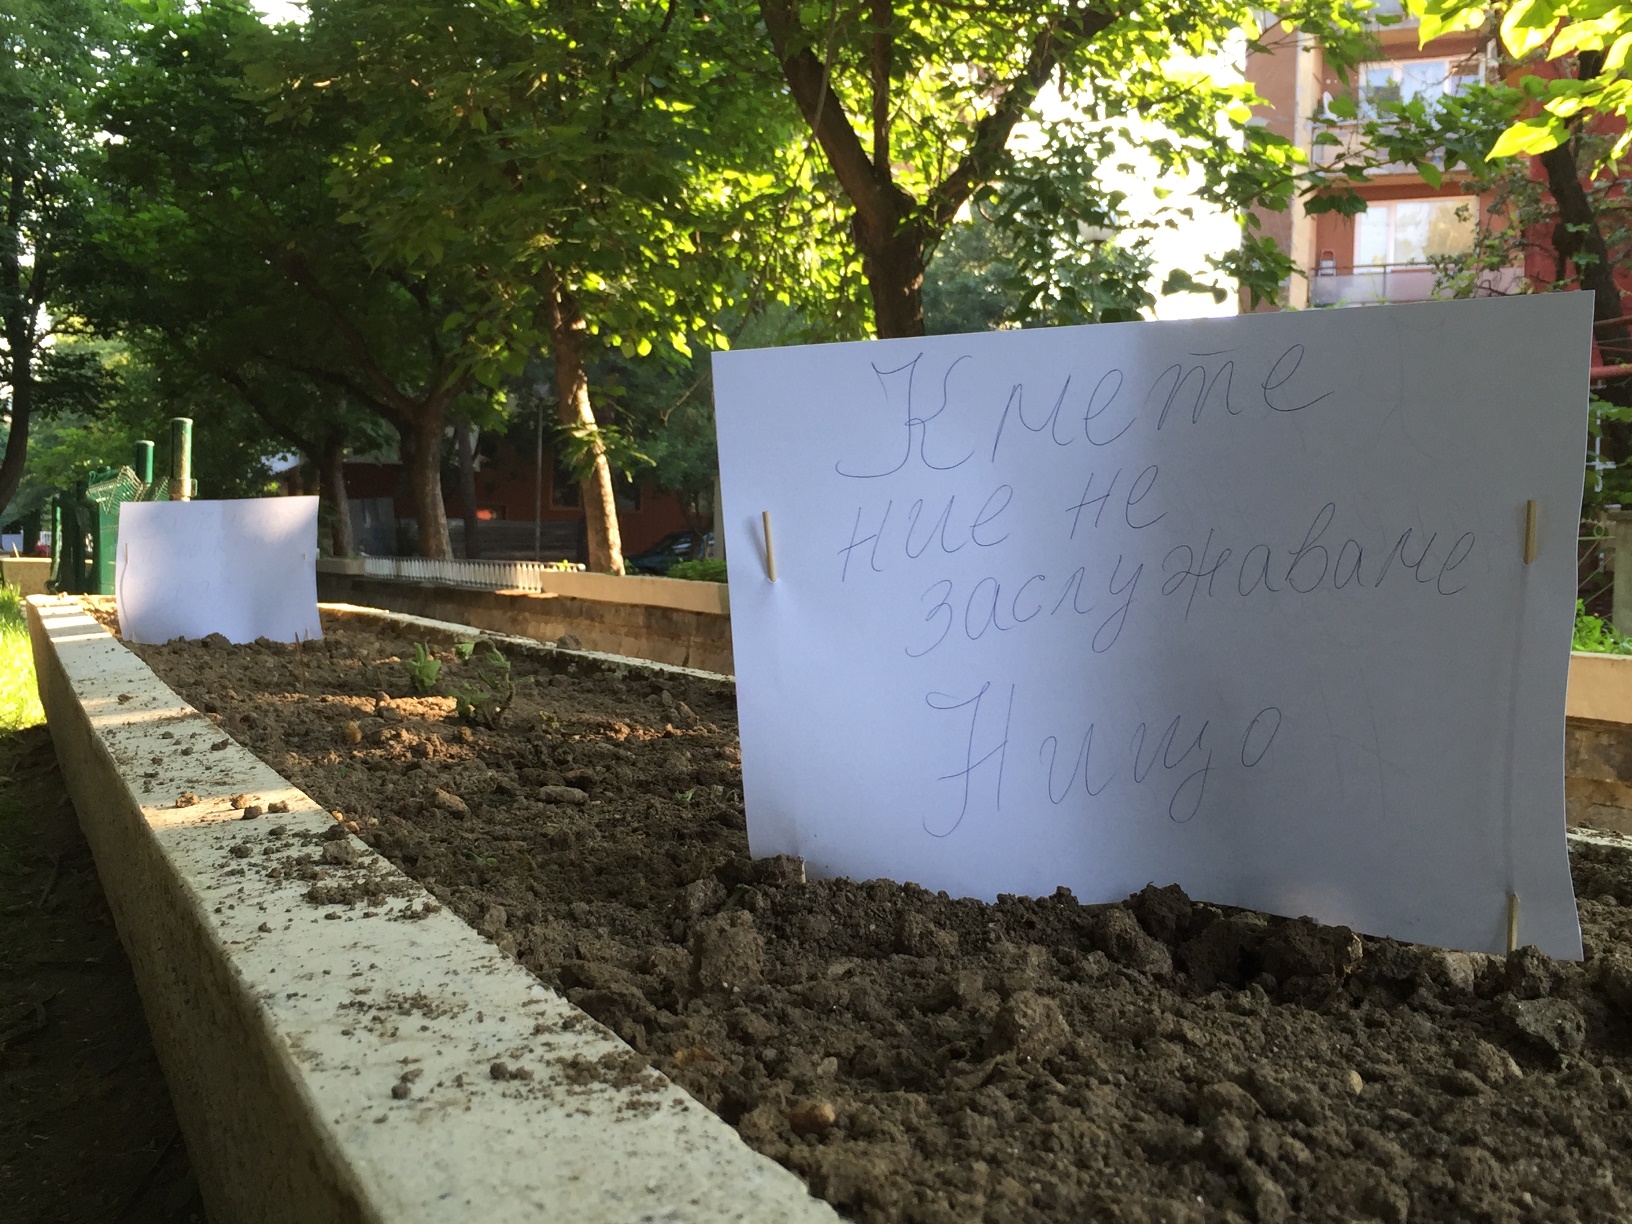 Кмете
ние не
заслужаваме
Нищо